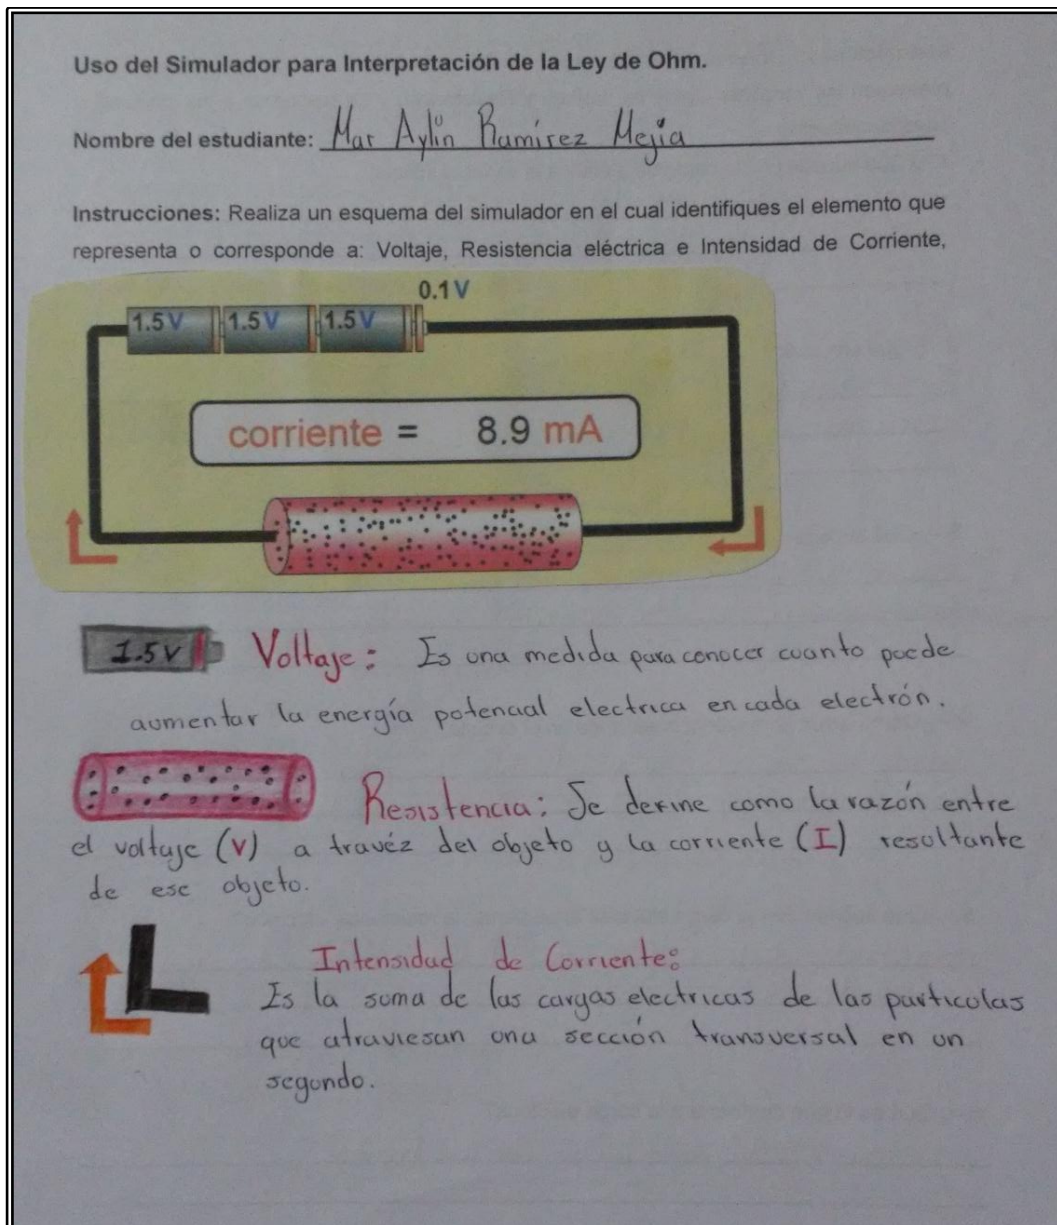 Uso del Simulador para Interpretación de la Ley de Ohm.
Nombre del estudiante: Mar Aylin Ramírez Mejia
Instrucciones: Realiza un esquema del simulador en el cual identifiques el elemento que
representa o corresponde a: Voltaje, Resistencia eléctrica e Intensidad de Corriente,
0.1 V
1.5 V 1.5 V 1.5 V
corriente = 8.9 mA
1.5 V Voltaje: Is una medida para conocer cuanto puede
aumentar la energía potencial electrica en cada electrón.
Resistencia: Se define como la razón entre
el voltaje (V) a travéz del objeto y la corriente (I) resultante
de ese objeto.
Intensidad de Corriente:
Is la suma de las cargas electricas de las particulas
que atraviesan una sección transversal en un
segundo.